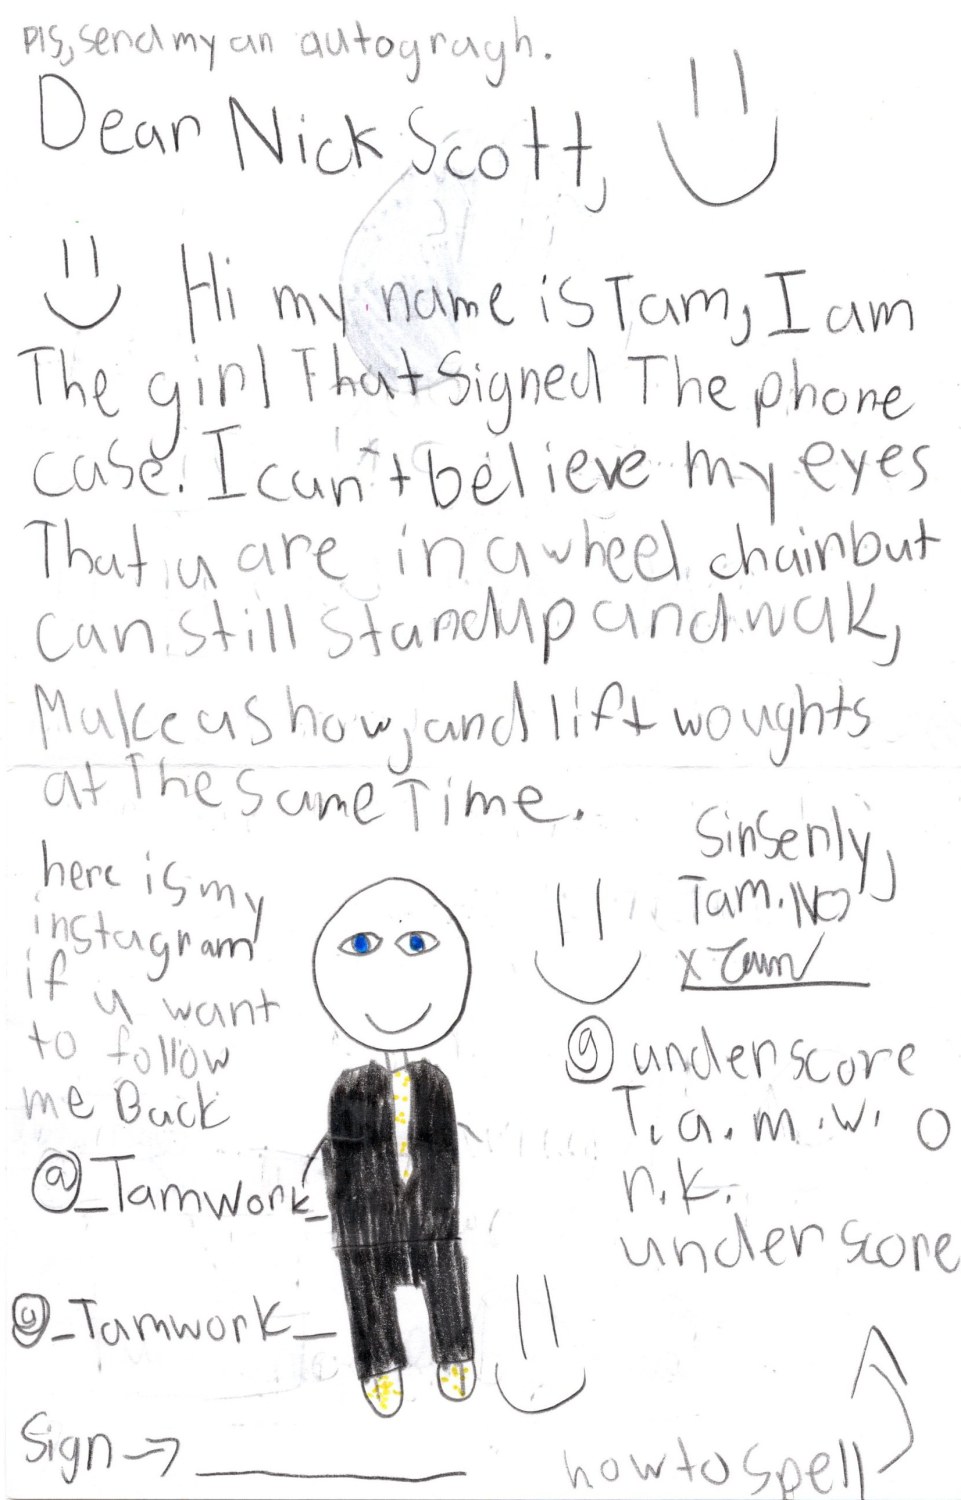 pls, send my an autogragh.
Dear Nick Scott,
Hi my name is Tam, I am
The girl That signed The phone
case. I can't believe my eyes
That u are in a wheel chair but
can still stand up and wak,
Make a show, and lift woughts
at The same Time.
Sinsenly,
Tam. No
x Tam
here is my
instagram
if u want
to follow
me Back
@_Tamwork_
@_Tamwork_
@ underscore
T. a. m. w. o
r. k.
underscore
how to spell
Sign → ____________